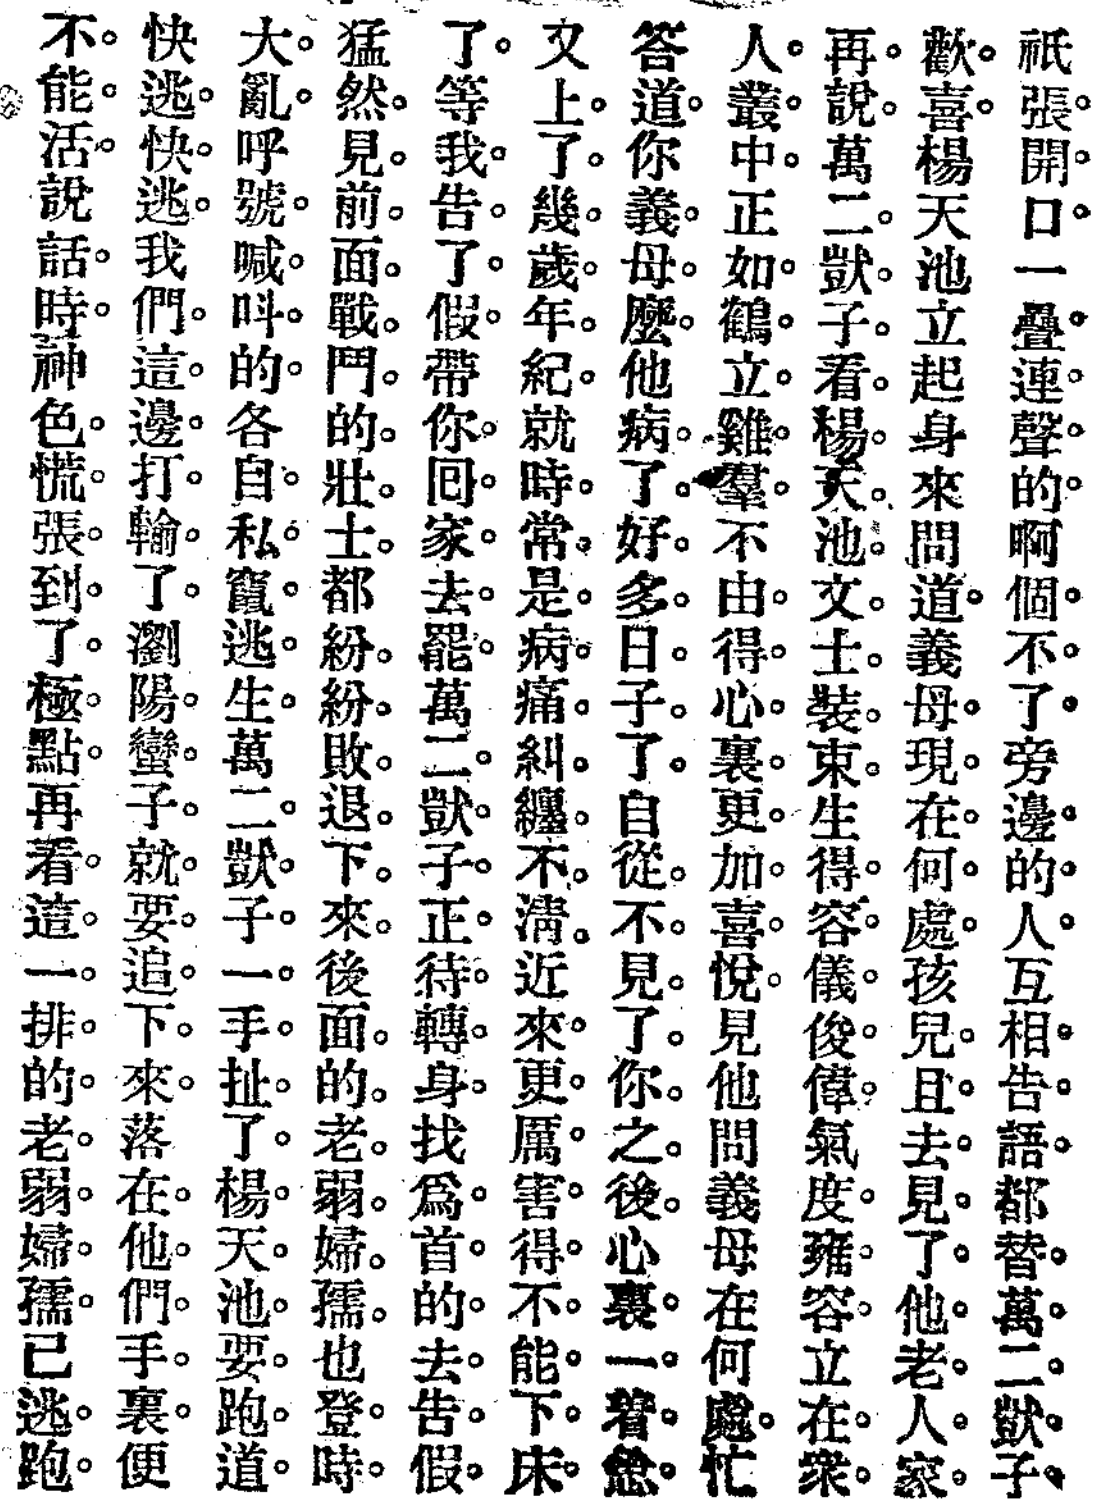 祇張開口一疊連聲的啊個不了旁邊的人互相告語都替萬二獃子
歡喜楊天池立起身來問道義母現在何處孩兒且去見了他老人家
再說萬二獃子看楊天池文士裝束生得容儀俊偉氣度雍容立在衆
人叢中正如鶴立雞羣不由得心裏更加喜悅見他問義母在何處忙
答道你義母麼他病了好多日子了自從不見了你之後心裏一着急
又上了幾歲年紀就時常是病痛糾纏不淸近來更厲害得不能下床
了等我告了假帶你回家去罷萬二獃子正待轉身找爲首的去告假
猛然見前面戰鬥的壯士都紛紛敗退下來後面的老弱婦孺也登時
大亂呼號喊呌的各自私竄逃生萬二獃子一手扯了楊天池要跑道
快逃快逃我們這邊打輸了瀏陽蠻子就要追下來落在他們手裏便
不能活說話時神色慌張到了極點再看這一排的老弱婦孺已逃跑